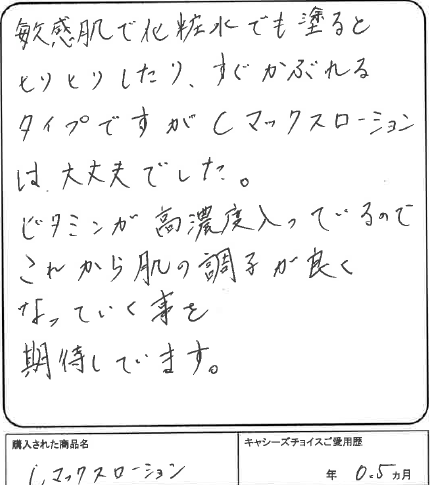 敏感肌で化粧水でも塗ると
ヒリヒリしたり、すぐかぶれる
タイプですがCマックスローション
は、大丈夫でした。
ビタミンが高濃度入っているので
これから肌の調子が良く
なっていく事を
期待しています。
購入された商品名
Cマックスローション
キャシーズチョイスご愛用歴
年 0.5ヵ月